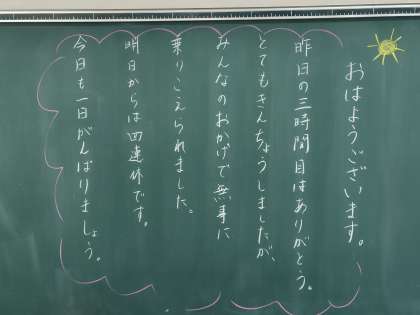 おはようございます。
昨日の三時間目はありがとう。
とてもきんちょうしましたが、
みんなのおかげで無事に
乗りこえられました。
明日からは四連休です。
今日も一日がんばりましょう。